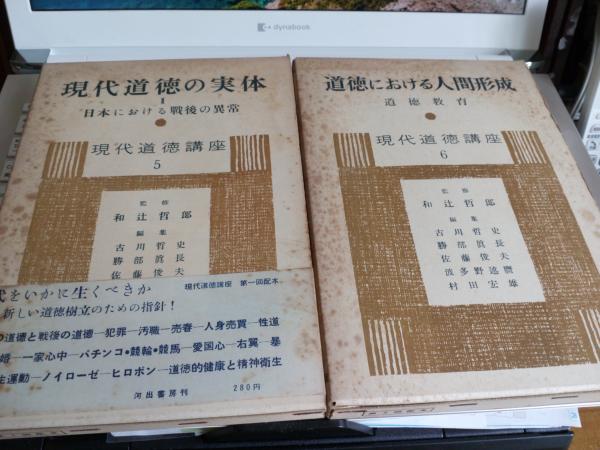 dynabook
現代道徳の実体
1
日本における戦後の異常
現代道徳講座
5
監修
和辻哲郎
編集
古川哲史
勝部眞長
佐藤俊夫
代をいかに生くべきか
現代道徳講座 第一回配本
新しい道徳樹立のための指針!
の道徳と戦後の道徳―犯罪―汚職―売春―人身売買―性道
婚―一家心中―パチンコ・競輪・競馬―愛国心―右翼―暴
生運動―ノイローゼ―ヒロポン―道徳的健康と精神衛生
河出書房刊
280円
道徳における人間形成
道徳教育
現代道徳講座
6
監修
和辻哲郎
編集
古川哲史
勝部眞長
佐藤俊夫
波多野述麿
村田宏雄